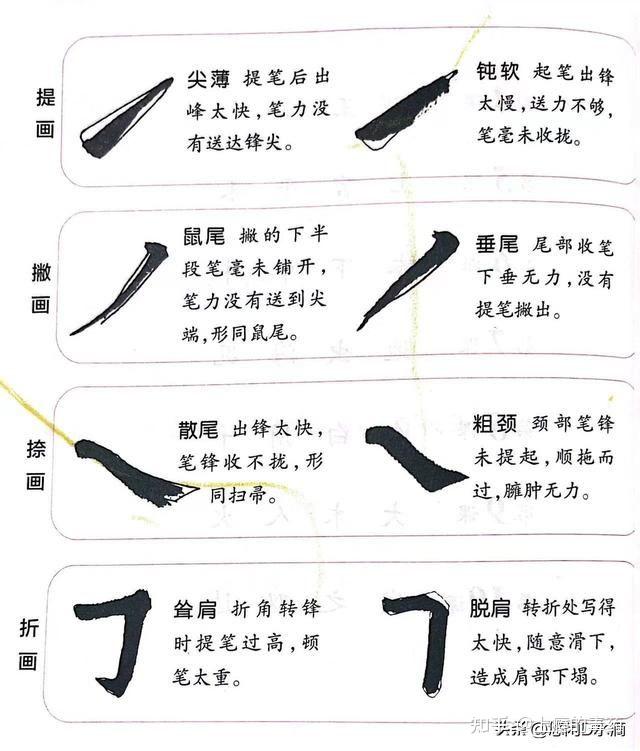 提画
尖薄 提笔后出
峰太快，笔力没
有送达锋尖。
钝软 起笔出锋
太慢，送力不够，
笔毫未收拢。
撇画
鼠尾 撇的下半
段笔毫未铺开，
笔力没有送到尖
端，形同鼠尾。
垂尾 尾部收笔
下垂无力，没有
提笔撇出。
捺画
散尾 出锋太快，
笔锋收不拢，形
同扫帚。
粗颈 颈部笔锋
未提起，顺拖而
过，臃肿无力。
折画
耸肩 折角转锋
时提笔过高，顿
笔太重。
脱肩 转折处写得
太快，随意滑下，
造成肩部下塌。